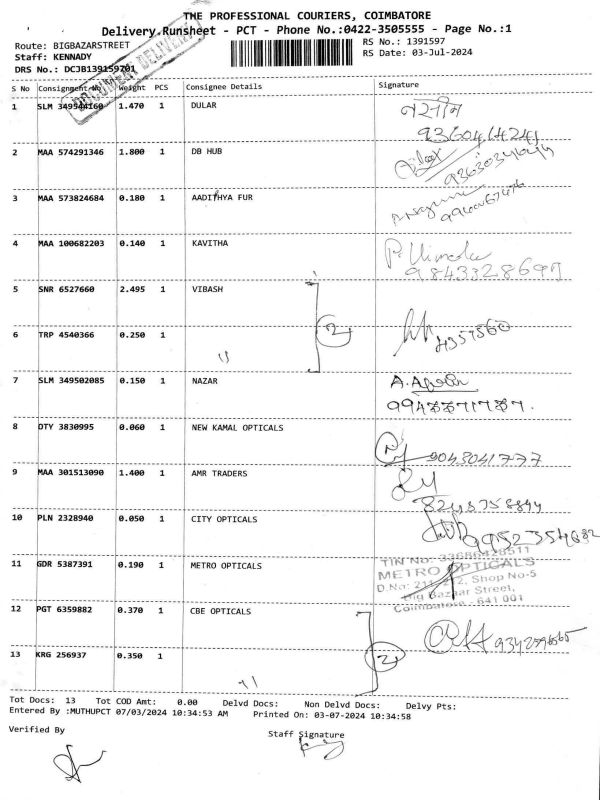 THE PROFESSIONAL COURIERS, COIMBATORE
Delivery Runsheet - PCT - Phone No.:0422-3505555 - Page No.:1
Route: BIGBAZARSTREET RS No.: 1391597
Staff: KENNADY RS Date: 03-Jul-2024
DRS No.: DCJB139159701
DOCUMENT DELIVERY
S No Consignment No Weight PCS Consignee Details Signature
1 SLM 349544160 1.470 1 DULAR नसीम
9360414241
2 MAA 574291346 1.800 1 DB HUB
3 MAA 573824684 0.180 1 AADITHYA FUR
4 MAA 100682203 0.140 1 KAVITHA P. Vimala
5 SNR 6527660 2.495 1 VIBASH
2
6 TRP 4540366 0.250 1
7 SLM 349502085 0.150 1 NAZAR
8 OTY 3830995 0.060 1 NEW KAMAL OPTICALS
9043041777
9 MAA 301513090 1.400 1 AMR TRADERS
10 PLN 2328940 0.050 1 CITY OPTICALS
11 GDR 5387391 0.190 1 METRO OPTICALS
METRO OPTICALS
Shop No-5
Big Bazaar Street,
Coimbatore - 641 001
12 PGT 6359882 0.370 1 CBE OPTICALS
2
13 KRG 256937 0.350 1
Tot Docs: 13 Tot COD Amt: 0.00 Delvd Docs: Non Delvd Docs: Delvy Pts:
Entered By :MUTHUPCT 07/03/2024 10:34:53 AM Printed On: 03-07-2024 10:34:58
Verified By Staff Signature